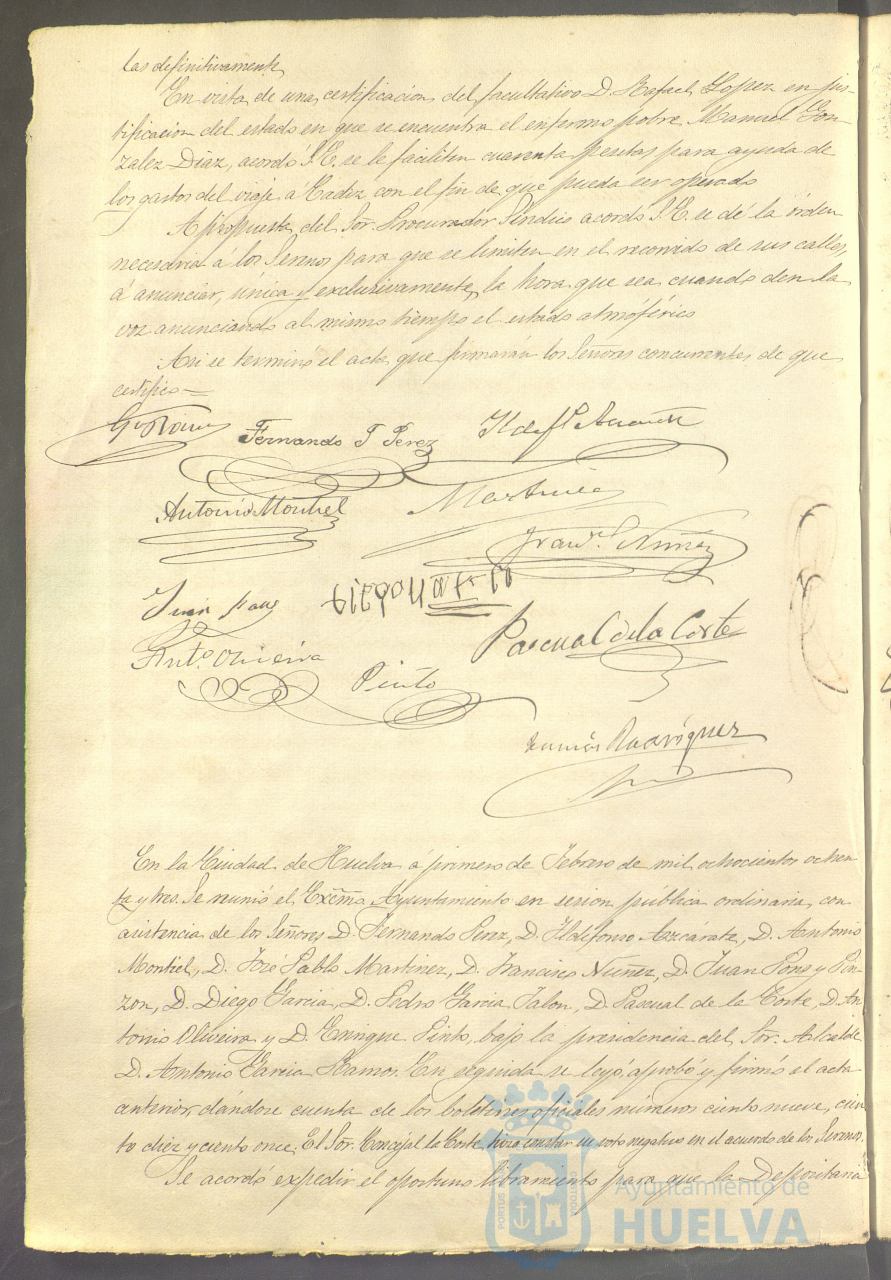 las definitivamente
En vista de una certificacion del facultativo D. Rafael Lopez en jus-
tificacion del estado en que se encuentra el enfermo pobre Manuel Gon
zalez Diaz, acordó S.E. se le faciliten cuarenta pesetas para ayuda de
los gastos del viaje á Cadiz con el fin de que pueda ser operado
A propuesta del Sor. Procurador Síndico acordó S.E. se dé la órden
necesaria á los Serenos para que se limiten en el recorrido de sus calles,
á anunciar, única y exclusivamente, la hora que sea cuando den la
voz anunciando al mismo tiempo el estado atmosférico
Asi se terminó el acta que firmarán los Señores concurrentes de que
certifico =
Fernando T Perez
Antonio Montiel
Martinez
Franco. Nuñez
Juan Pons
Pascual de la Corte
Anto. Oliveira
Pinto
Rodriguez
En la Ciudad de Huelva á primero de Febrero de mil ochocientos ochen
ta y tres. Se reunió el Excmo. Ayuntamiento en sesion pública ordinaria, con
asistencia de los Señores D. Fernando Perez, D. Ildefonso Azcárate, D. Antonio
Montiel, D. José Pablo Martinez, D. Francisco Nuñez, D. Juan Pons y Pin-
zon, D. Diego Garcia, D. Pedro Garcia Jalon, D. Pascual de la Corte, D. An-
tonio Oliveira y D. Enrique Pinto, bajo la presidencia del Sor. Alcalde
D. Antonio Garcia Ramos. En seguida se leyó, aprobó y firmó el acta
anterior, dándose cuenta de los boletines oficiales números ciento nueve, cien-
to diez y ciento once. El Sor. Concejal la Corte hizo constar su voto negativo en el acuerdo de los Serenos.
Se acordó expedir el oportuno libramiento para que la Depositaria
Ayuntamiento de
HUELVA